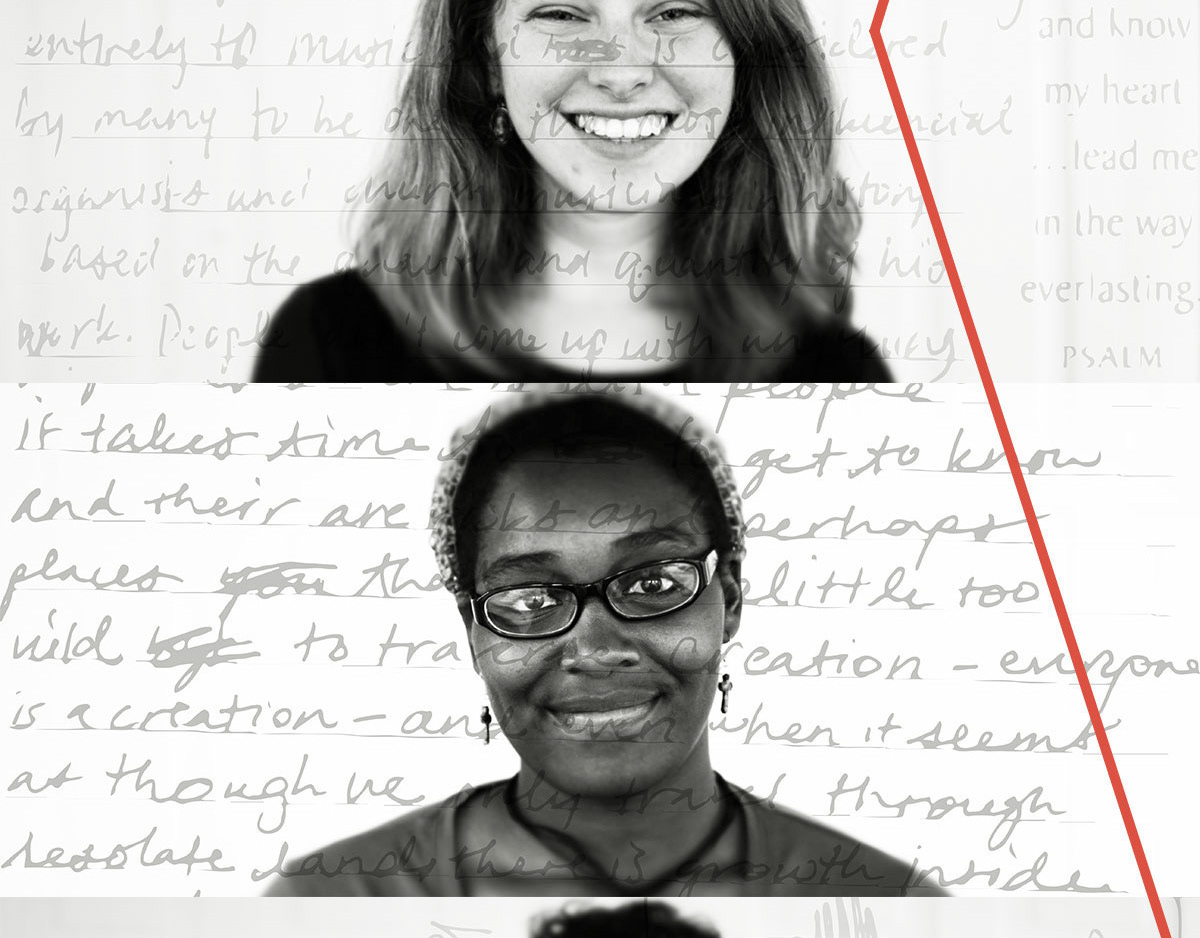 entirely to music and is considered
by many to be one of the most influential
organists and church musicians in history
based on the quality and quantity of his
work. People don't come up with
and know
my heart
...lead me
in the way
everlasting
PSALM
people
it takes time to get to know
and their are and perhaps
places the a little too
wild to travel creation - everyone
is a creation - and even when it seems
as though we only travel through
desolate lands there is growth inside